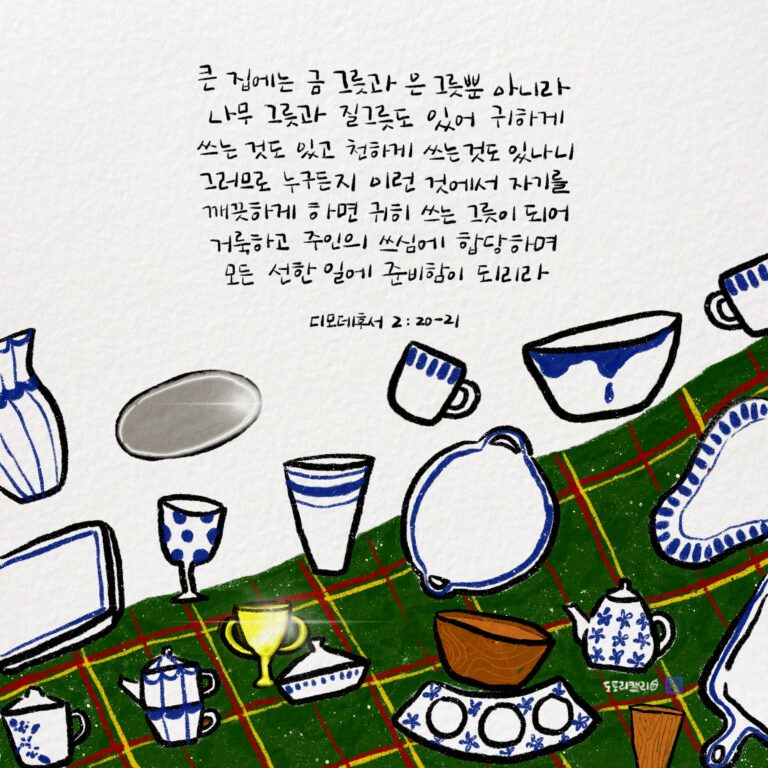 큰 집에는 금 그릇과 은 그릇뿐 아니라
나무 그릇과 질그릇도 있어 귀하게
쓰는 것도 있고 천하게 쓰는 것도 있나니
그러므로 누구든지 이런 것에서 자기를
깨끗하게 하면 귀히 쓰는 그릇이 되어
거룩하고 주인의 쓰심에 합당하며
모든 선한 일에 준비함이 되리라
디모데후서 2:20-21
도토리캘리